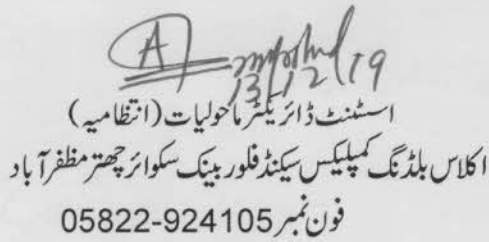 A
13/12/19
اسسٹنٹ ڈائریکٹر ماحولیات (انتظامیہ)
اکلاس بلڈنگ کمپلیکس سیکنڈ فلور بینک سکوائر چھتر مظفر آباد
فون نمبر 05822-924105